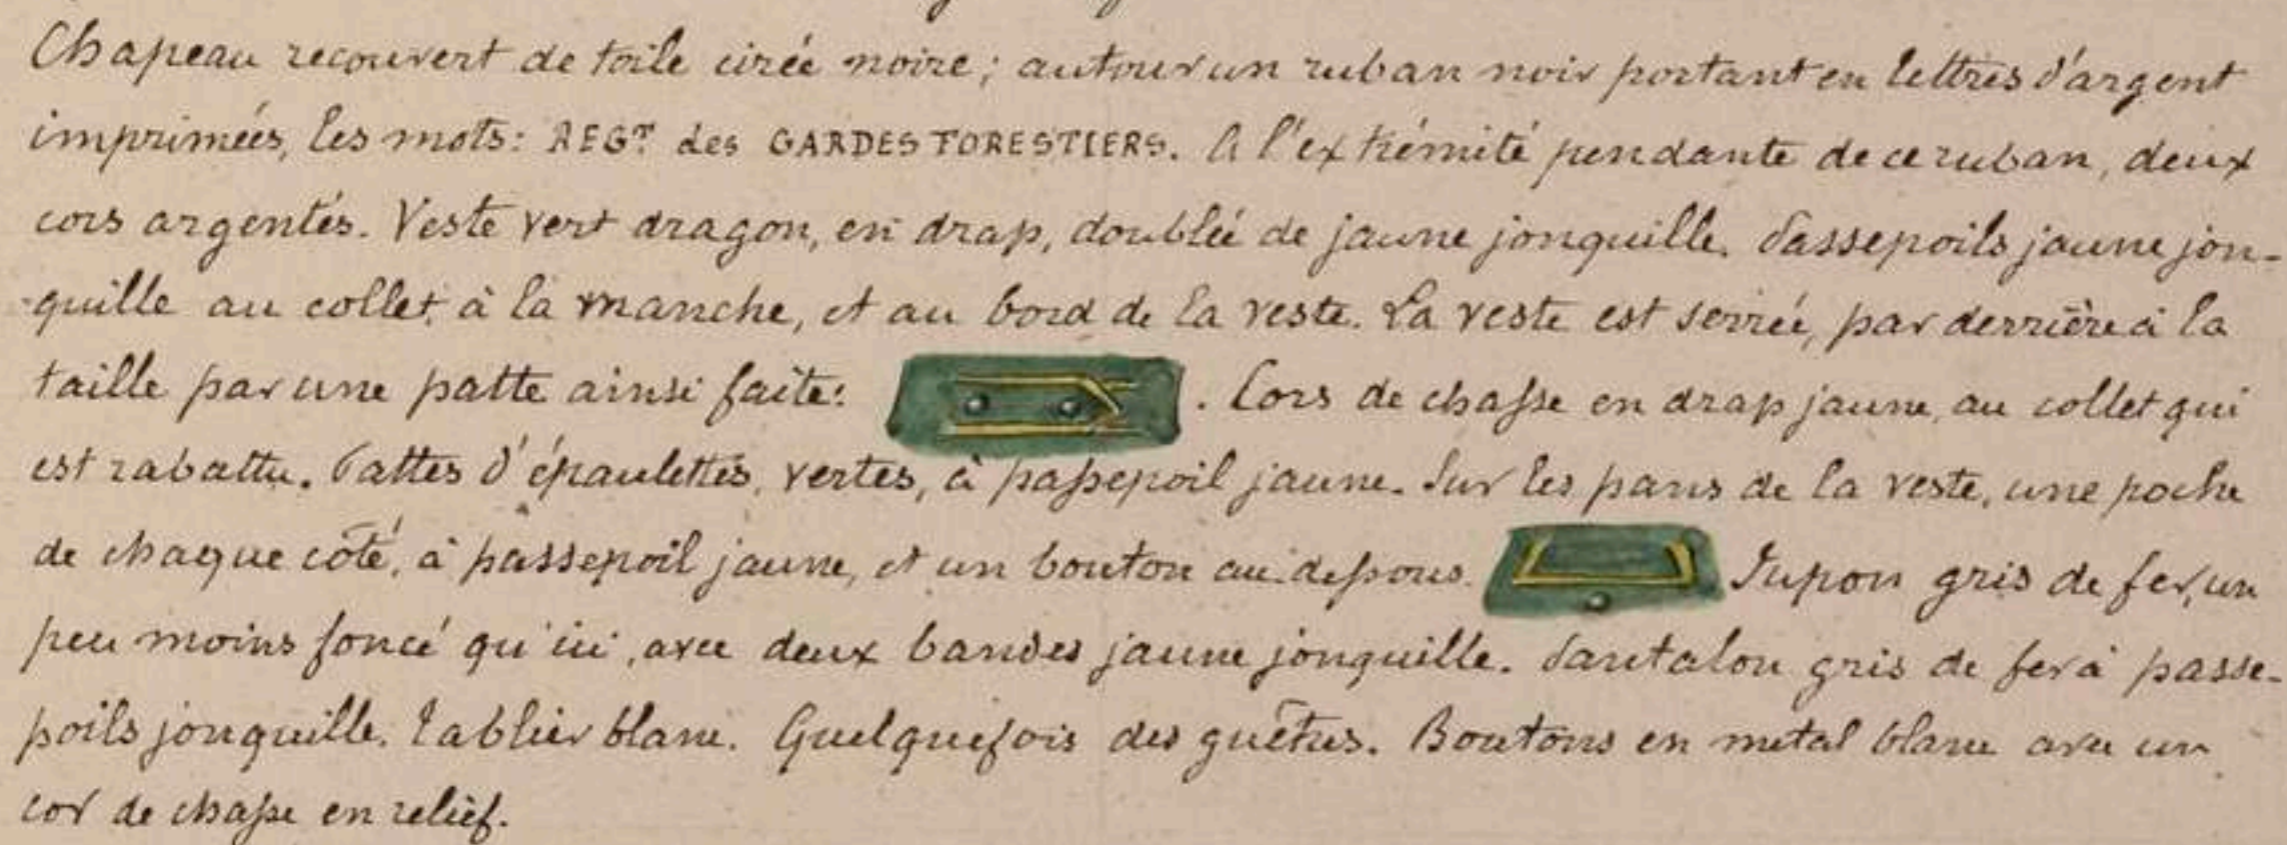 Chapeau recouvert de toile cirée noire; autour un ruban noir portant en lettres d'argent
imprimées, les mots: REGT des GARDES FORESTIERS. A l'extrémité pendante de ce ruban, deux
cors argentés. Veste vert dragon, en drap, doublée de jaune jonquille. Passepoils jaune jon-
-quille au collet, à la manche, et au bord de la veste. La veste est serrée, par derrière à la
taille par une patte ainsi faite: . Cors de chasse en drap jaune, au collet qui
est rabattu. Pattes d'épaulettes, vertes, à passepoil jaune. Sur les pans de la veste, une poche
de chaque côté, à passepoil jaune, et un bouton au-dessous. Jupon gris de fer, un
peu moins foncé qu'ici, avec deux bandes jaune jonquille. Pantalon gris de fer à passe-
poils jonquille. Tablier blanc. Quelquefois des guêtres. Boutons en métal blanc avec un
cor de chasse en relief.